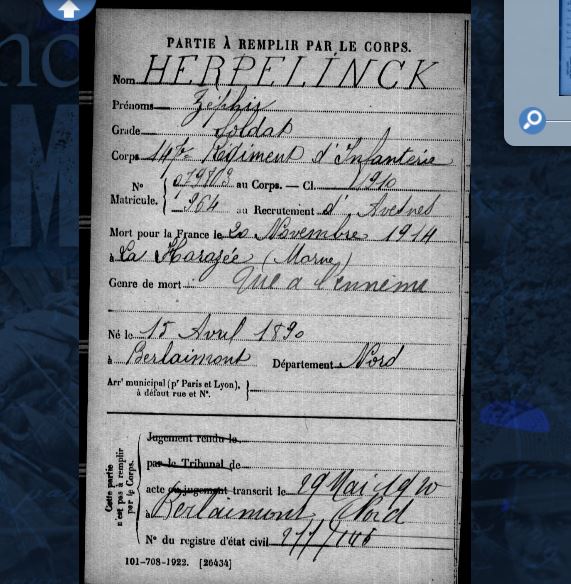 PARTIE À REMPLIR PAR LE CORPS.
Nom HERPELINCK
Prénoms Zéphir
Grade Soldat
Corps 147e Régiment d'Infanterie
N° Matricule. { 07980? au Corps. — Cl. 1910
964 au Recrutement d' Avesnes
Mort pour la France le 20 Novembre 1914
à La Harazée (Marne)
Genre de mort Tué a l'ennemi
Né le 15 Avril 1890
à Berlaimont Département Nord
Arrt municipal (pr Paris et Lyon),
à défaut rue et N°.
Cette partie n'est pas à remplir par le Corps.
Jugement rendu le
par le Tribunal de
acte ou jugement transcrit le 29 Mai 1920
à Berlaimont Nord
N° du registre d'état civil
101-708-1922. [26434]